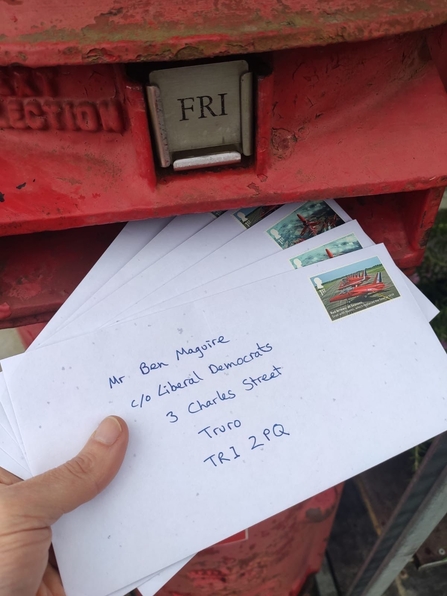 FRI
LECTION
Mr Ben Maguire
c/o Liberal Democrats
3 Charles Street
Truro
TR1 2PQ
1st